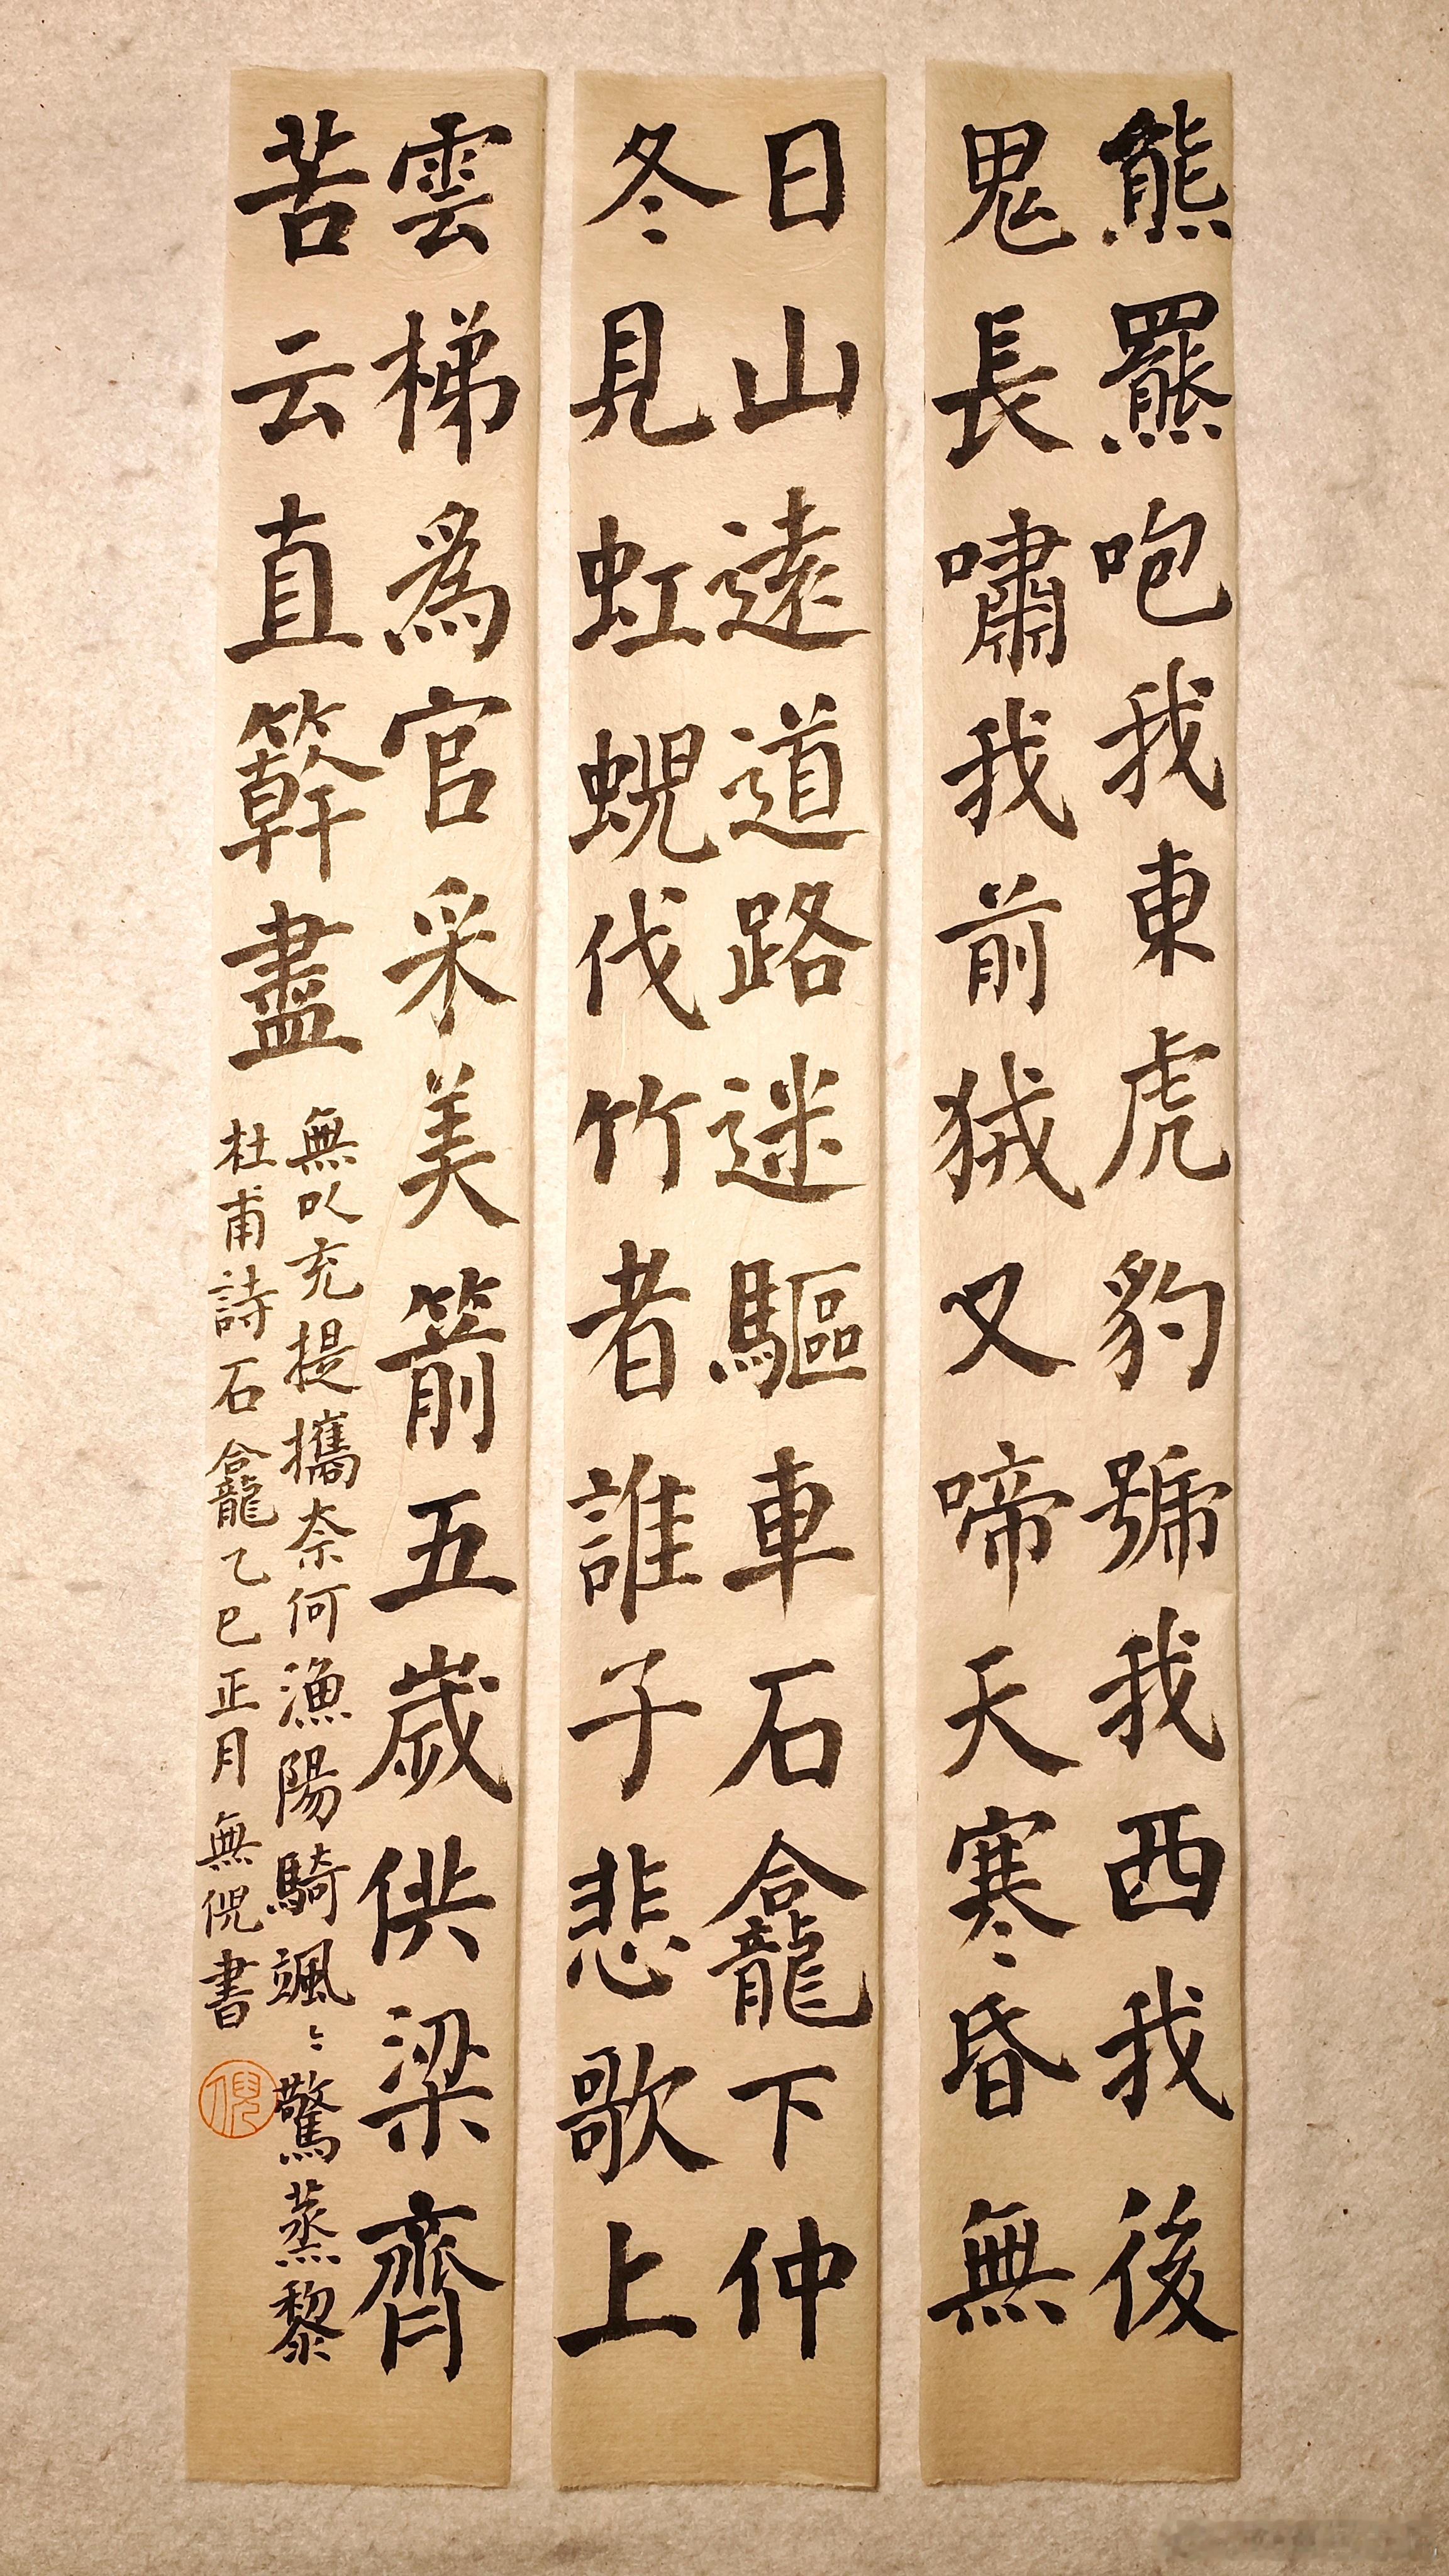 熊羆咆我東虎豹號我西我後
鬼長嘯我前狨又啼天寒昏無
日山遠道路迷驅車石龕下仲
冬見虹蜺伐竹者誰子悲歌上
雲梯為官采美箭五歲供梁齊
苦云直簳盡
無以充提攜奈何漁陽騎颯〻驚蒸黎
杜甫詩石龕乙巳正月無倪書
倪